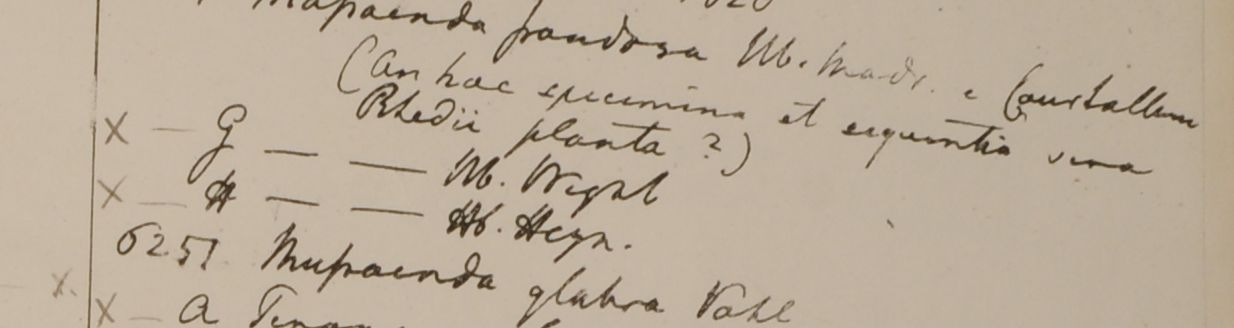 Mussaenda frondosa Hb. Madr. e Courtallum
(An haec specimina et sequentia vera
Rhedii planta ?)
X — G — — Hb. Wight
X — H — — Hb. Heyn.
6251 Mussaenda glabra Vahl
X. X — A